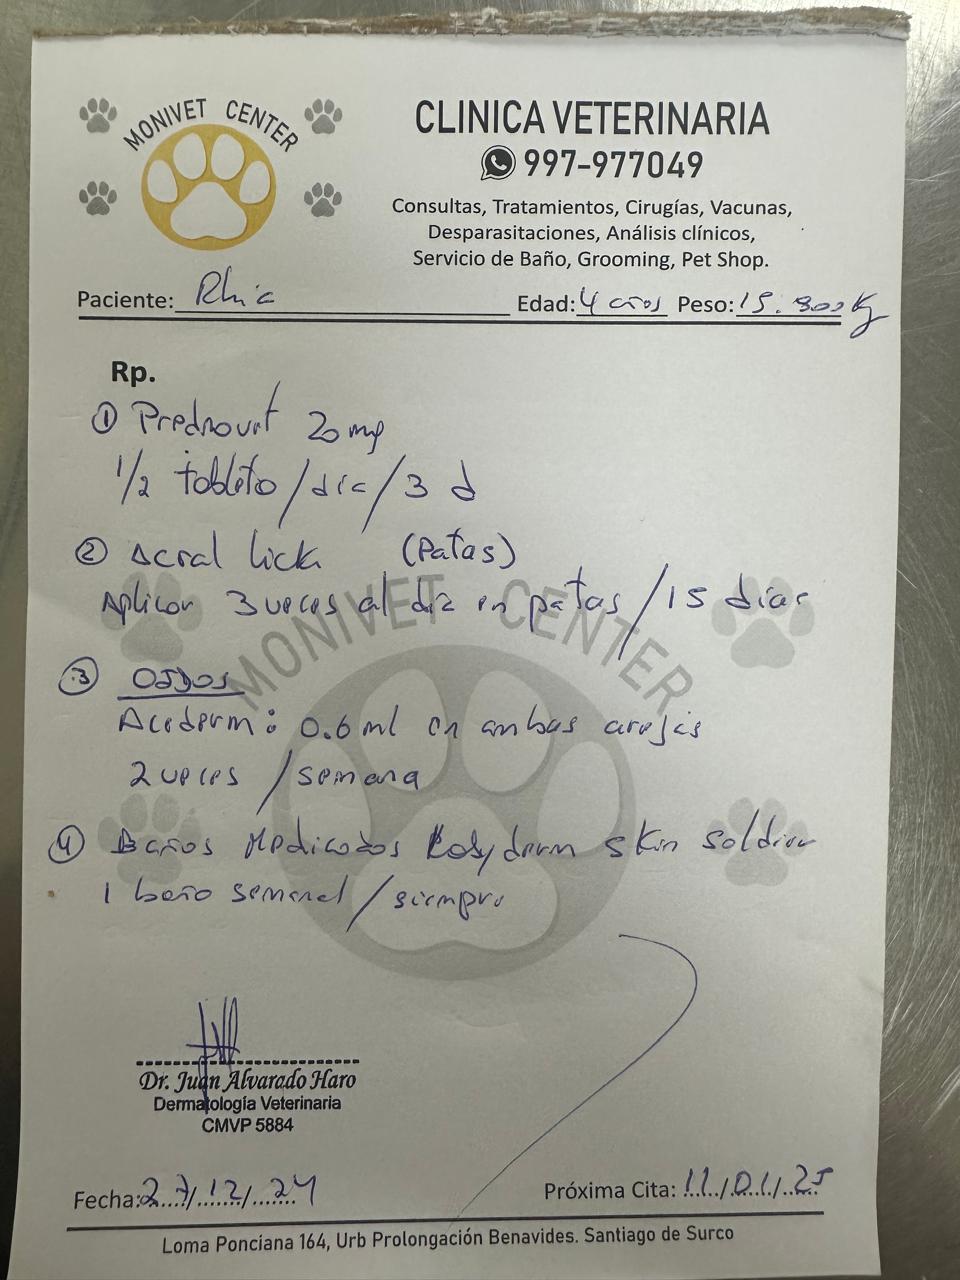 MONIVET CENTER
CLINICA VETERINARIA
997-977049
Consultas, Tratamientos, Cirugías, Vacunas,
Desparasitaciones, Análisis clínicos,
Servicio de Baño, Grooming, Pet Shop.
Paciente: Edad: 4 años Peso: 15.800 Kg
Rp.
① Prednovet 20 mg
1/2 tableta / día / 3 d
② Acral lick (Patas)
Aplicar 3 veces al día en patas / 15 días
③ OIDOS
Acederm: 0.6 ml en ambas orejas
2 veces / semana
MONIVET CENTER
④ Baños Medicados skin soldier
1 baño semanal / siempre
Dr. Juan Alvarado Haro
Dermatología Veterinaria
CMVP 5884
Fecha: 27/12/24 Próxima Cita: 11/01/25
Loma Ponciana 164, Urb Prolongación Benavides. Santiago de Surco